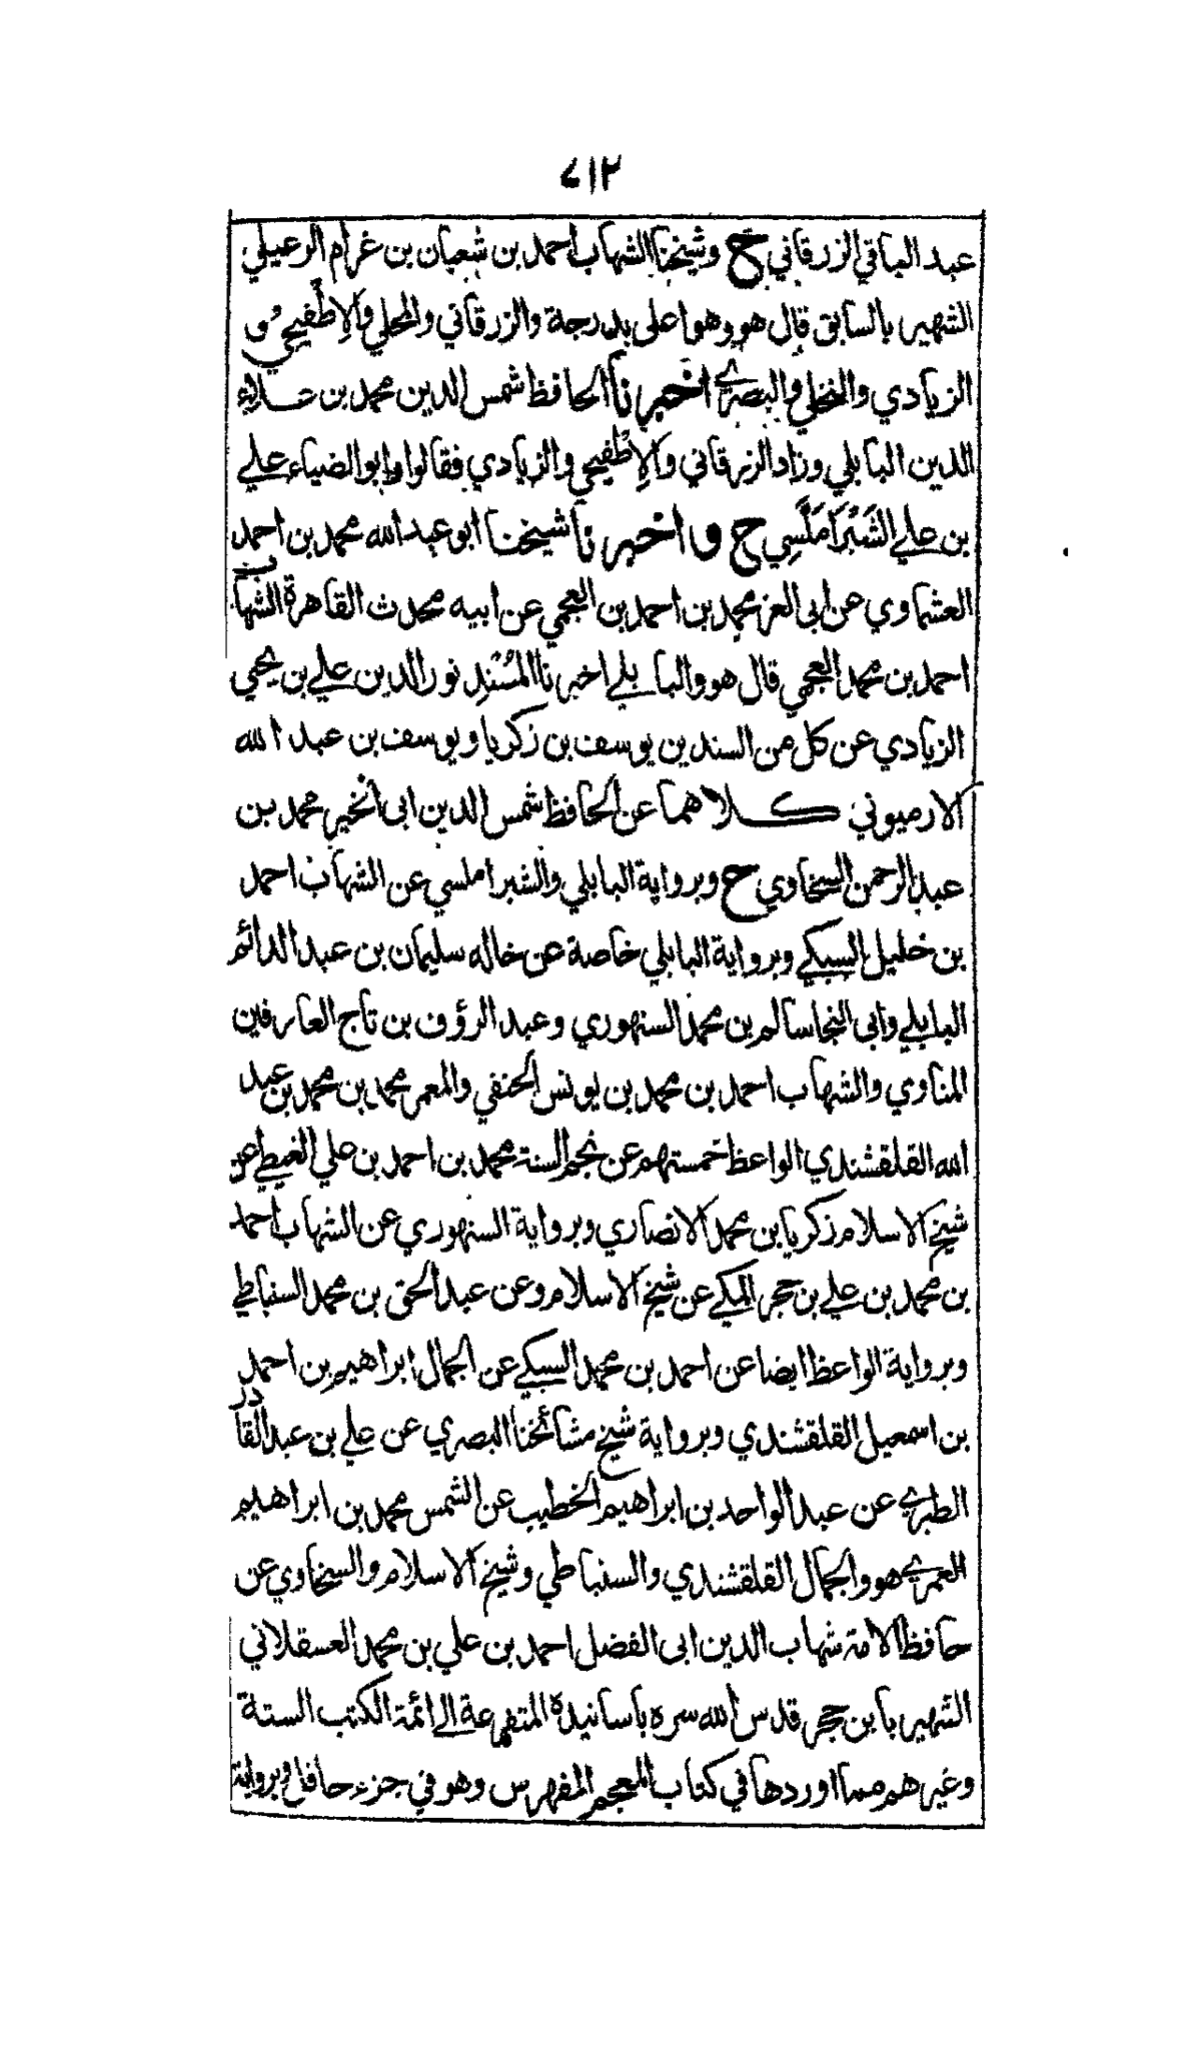 ٧١٢
عبد الباقي الزرقاني ح وشيخنا الشهاب احمد بن شعبان بن غرام الرعيلي
الشهير بالسابق قال هو وهو اعلى بدرجة والزرقاني والمحلي والاِطْفيحي و
الزيادي والنخلي والبصري اخبرنا الحافظ شمس الدين محمد بن علاء
الدين البابلي وزاد الزرقاني والاِطْفيحي والزيادي فقالوا وابو الضياء علي
بن علي الشَبْرَامَلَّسِي ح واخبرنا شيخنا ابو عبد الله محمد بن احمد
العشماوي عن ابى العز محمد بن احمد بن العجمي عن ابيه محدث القاهرة الشهاب
احمد بن محمد العجمي قال هو والبابلي اخبرنا المُسْنِد نور الدين علي بن يحيي
الزيادي عن كل من السندين يوسف بن زكريا ويوسف بن عبد الله
الارميوني كلاهما عن الحافظ شمس الدين ابى الخير محمد بن
عبد الرحمن السخاوي ح وبرواية البابلي والشبراملسي عن الشهاب احمد
بن خليل السبكي وبرواية البابلي خاصة عن خاله سليمان بن عبد الدائم
البابلي وابى النجا سالم بن محمد السنهوري وعبد الرؤف بن تاج العارفين
المناوي والشهاب احمد بن محمد بن يونس الحنفي والمعمر محمد بن محمد بن عبد
الله القلقشندي الواعظ خمستهم عن نجم السنة محمد بن احمد بن علي الغيطي عن
شيخ الاسلام زكريا بن محمد الانصاري وبرواية السنهوري عن الشهاب احمد
بن محمد بن علي بن حجر المكي عن شيخ الاسلام وعن عبد الحق بن محمد السنباطي
وبرواية الواعظ ايضا عن احمد بن محمد السبكي عن الجمال ابراهيم بن احمد
بن اسمعيل القلقشندي وبرواية شيخ مشائخنا البصري عن علي بن عبد القادر
الطبري عن عبد الواحد بن ابراهيم الخطيب عن الشمس محمد بن ابراهيم
العمري هو والجمال القلقشندي والسنباطي وشيخ الاسلام والسخاوي عن
حافظ الامة شهاب الدين ابى الفضل احمد بن علي بن محمد العسقلاني
الشهير بابن حجر قدس الله سره باسانيدة المتفرعة الى ائمة الكتب الستة
وغيرهم مما اوردها في كتاب المعجم المفهرس وهو في جزء حافل وبرواية